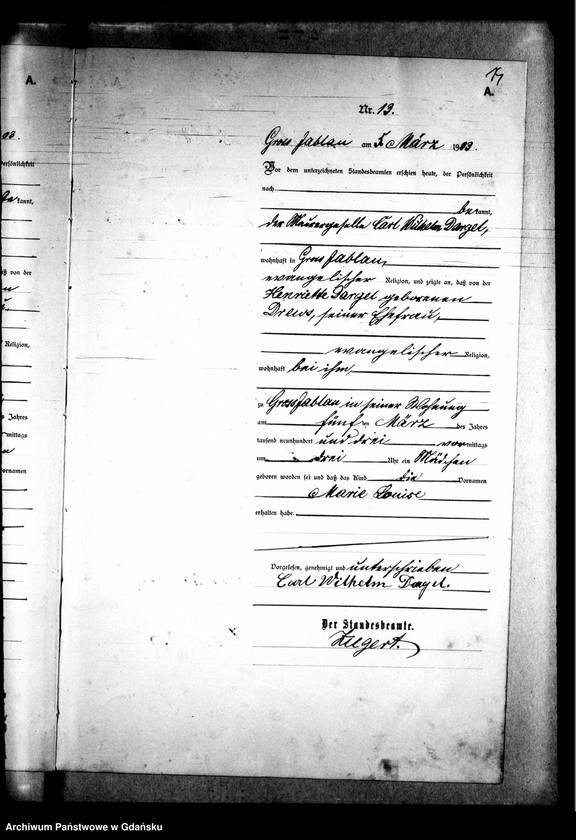 A.
A.
Nr. 13.
Gross Jablau am 5. März 1903.
Vor dem unterzeichneten Standesbeamten erschien heute, der Persönlichkeit
nach
be kannt,
der Maurergeselle Carl Wilhelm Dargel,
wohnhaft in Gross Jablau,
evangelischer Religion, und zeigte an, daß von der
Henriette Dargel geborenen
Drews, seiner Ehefrau,
evangelischer Religion,
wohnhaft bei ihm
zu Gross Jablau in seiner Wohnung
am fünften März des Jahres
tausend neunhundert und drei vormittags
um drei Uhr ein Mädchen
geboren worden sei und daß das Kind die Vornamen
Marie Louise
erhalten habe.
Vorgelesen, genehmigt und unterschrieben
Carl Wilhelm Dargel.
Der Standesbeamte.
03.
Persönlichkeit
kannt,
aß von der
Religion,
Jahres
mittags
Vornamen
Archiwum Państwowe w Gdańsku